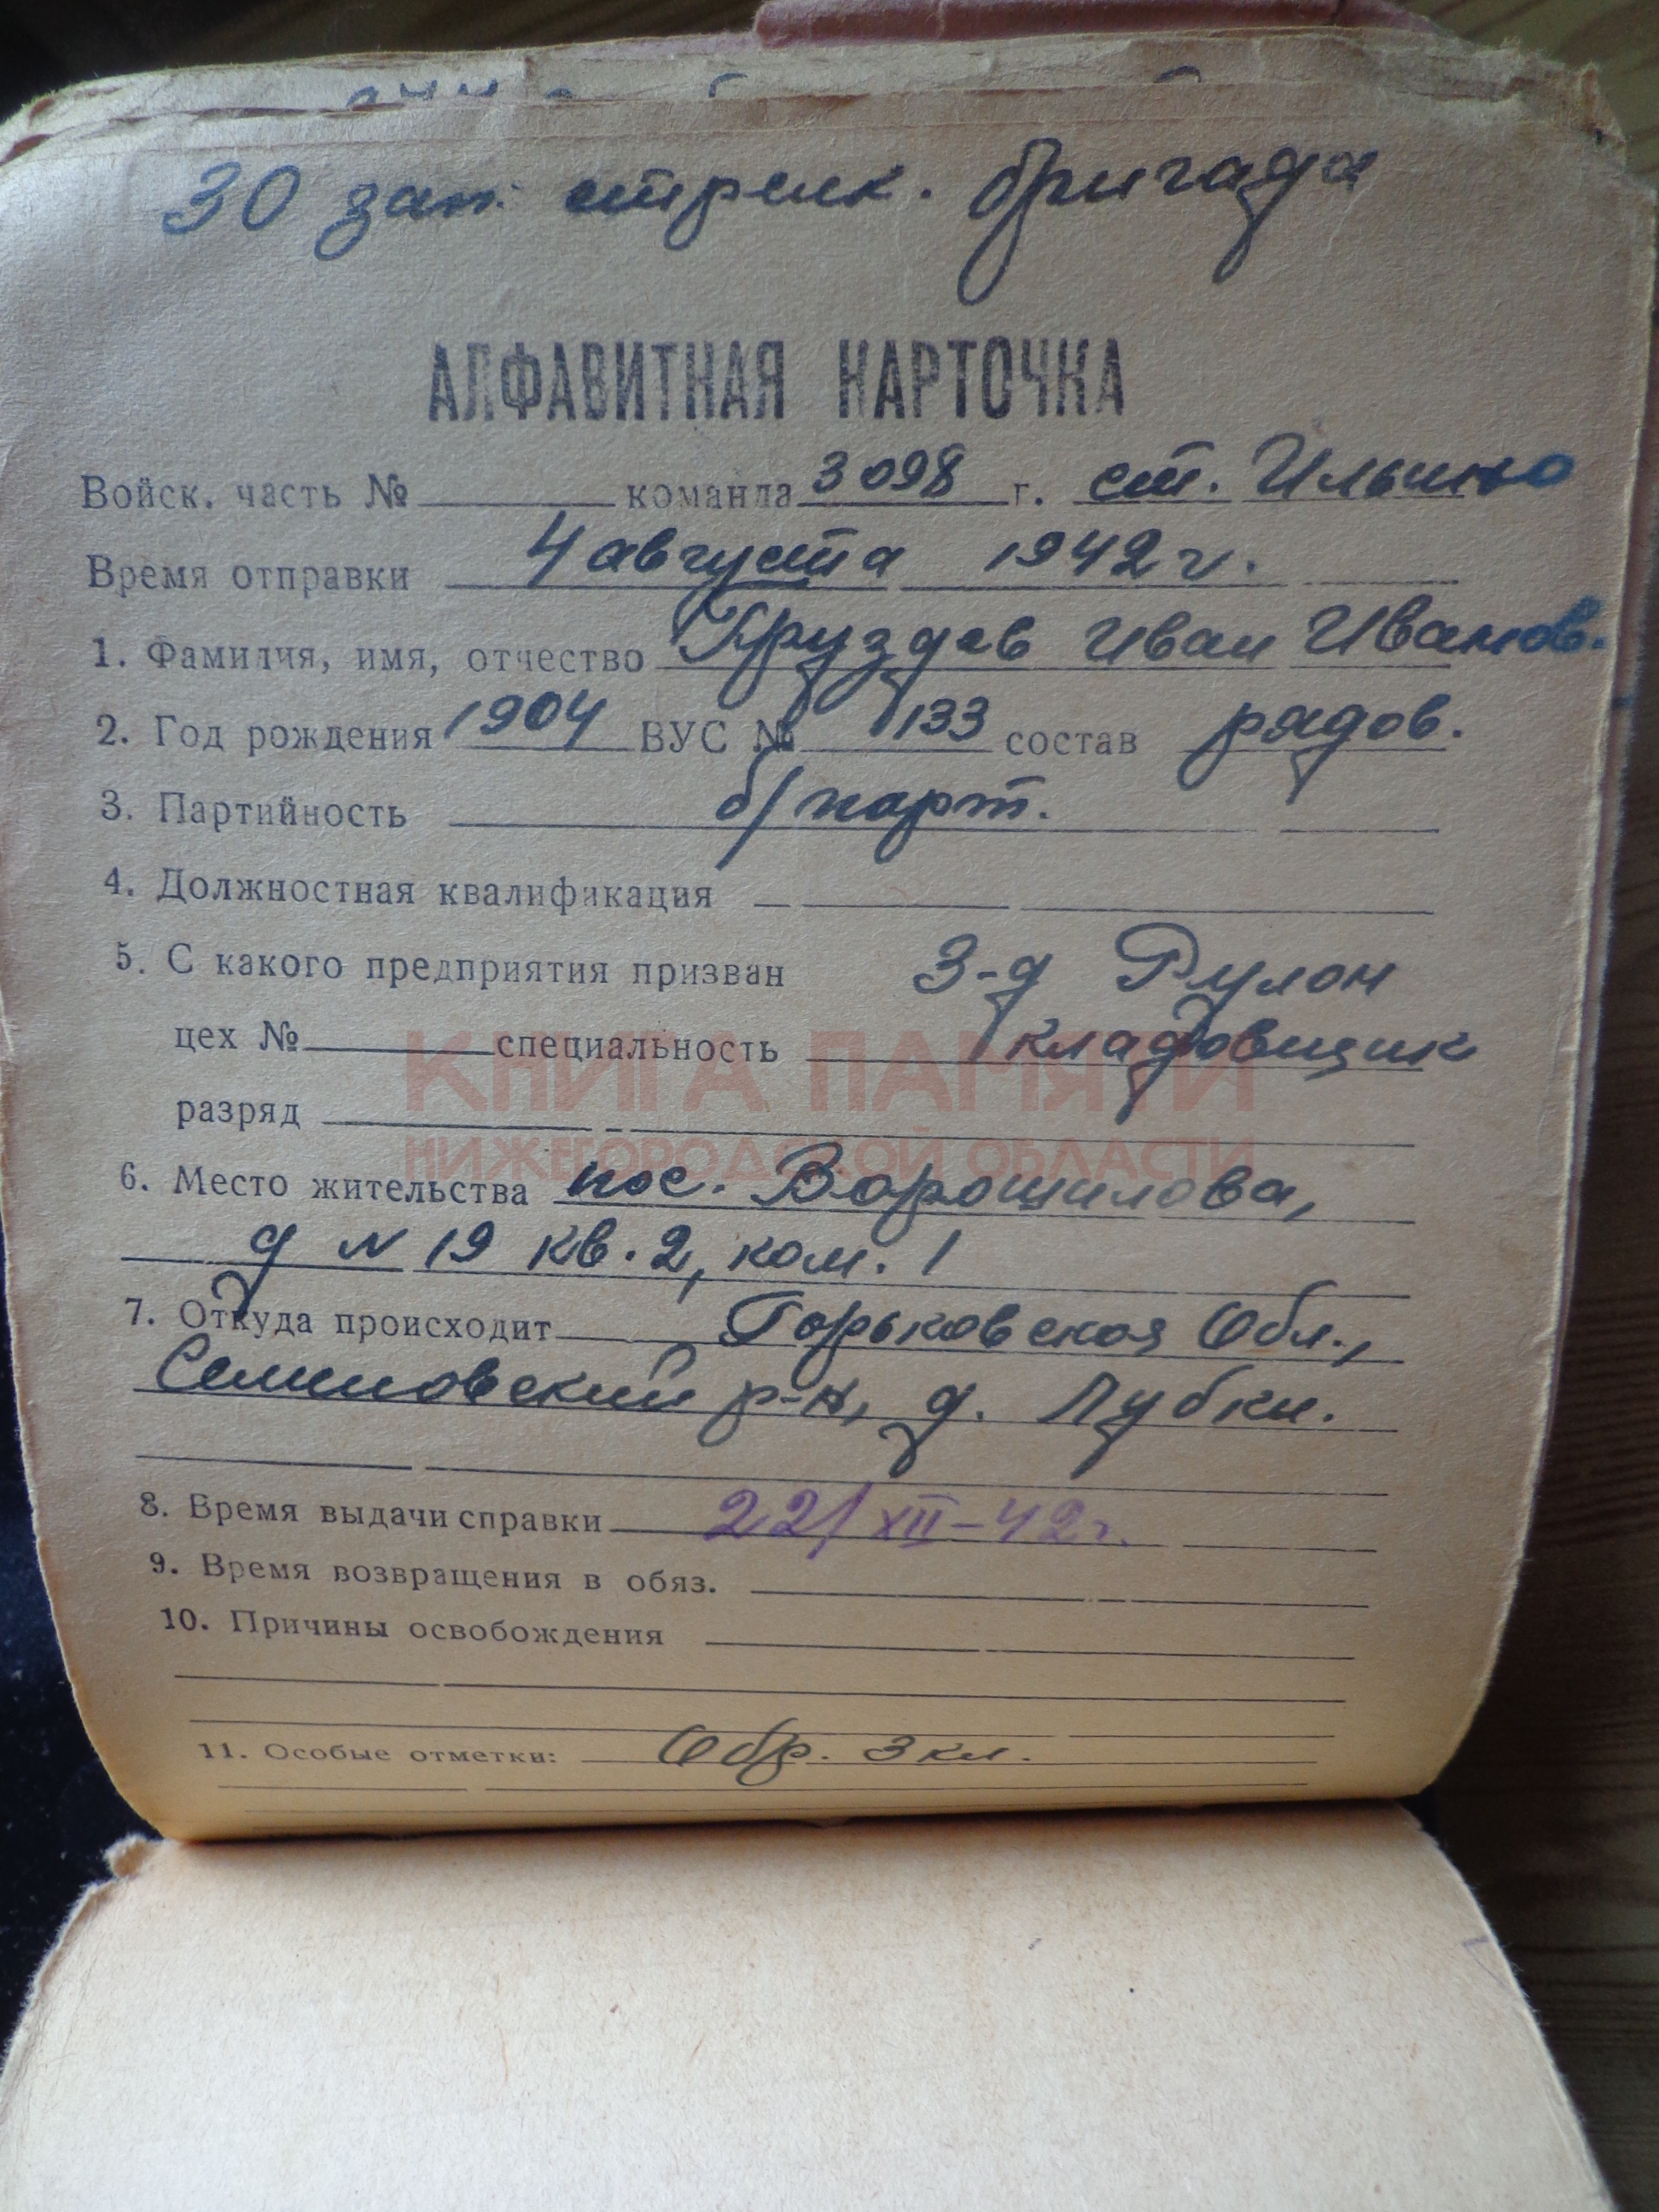 30 зап. стрелк. бригада
АЛФАВИТНАЯ КАРТОЧКА
Войск. часть № команда 3098 г. ст. Ильино
Время отправки 4 августа 1942 г.
1. Фамилия, имя, отчество Груздев Иван Иванов.
2. Год рождения 1904 ВУС № 133 состав рядов.
3. Партийность б/парт.
4. Должностная квалификация
5. С какого предприятия призван З-д Рулон
цех № специальность кладовщик
КНИГА ПАМЯТИ
разряд
НИЖЕГОРОДСКОЙ ОБЛАСТИ
6. Место жительства пос. Ворошилова,
д N 19 кв. 2, ком. 1
7. Откуда происходит Горьковская Обл.,
Семеновский р-н, д. Лубки.
8. Время выдачи справки 22/XII-42г.
9. Время возвращения в обяз.
10. Причины освобождения
11. Особые отметки: Обр. 3 кл.